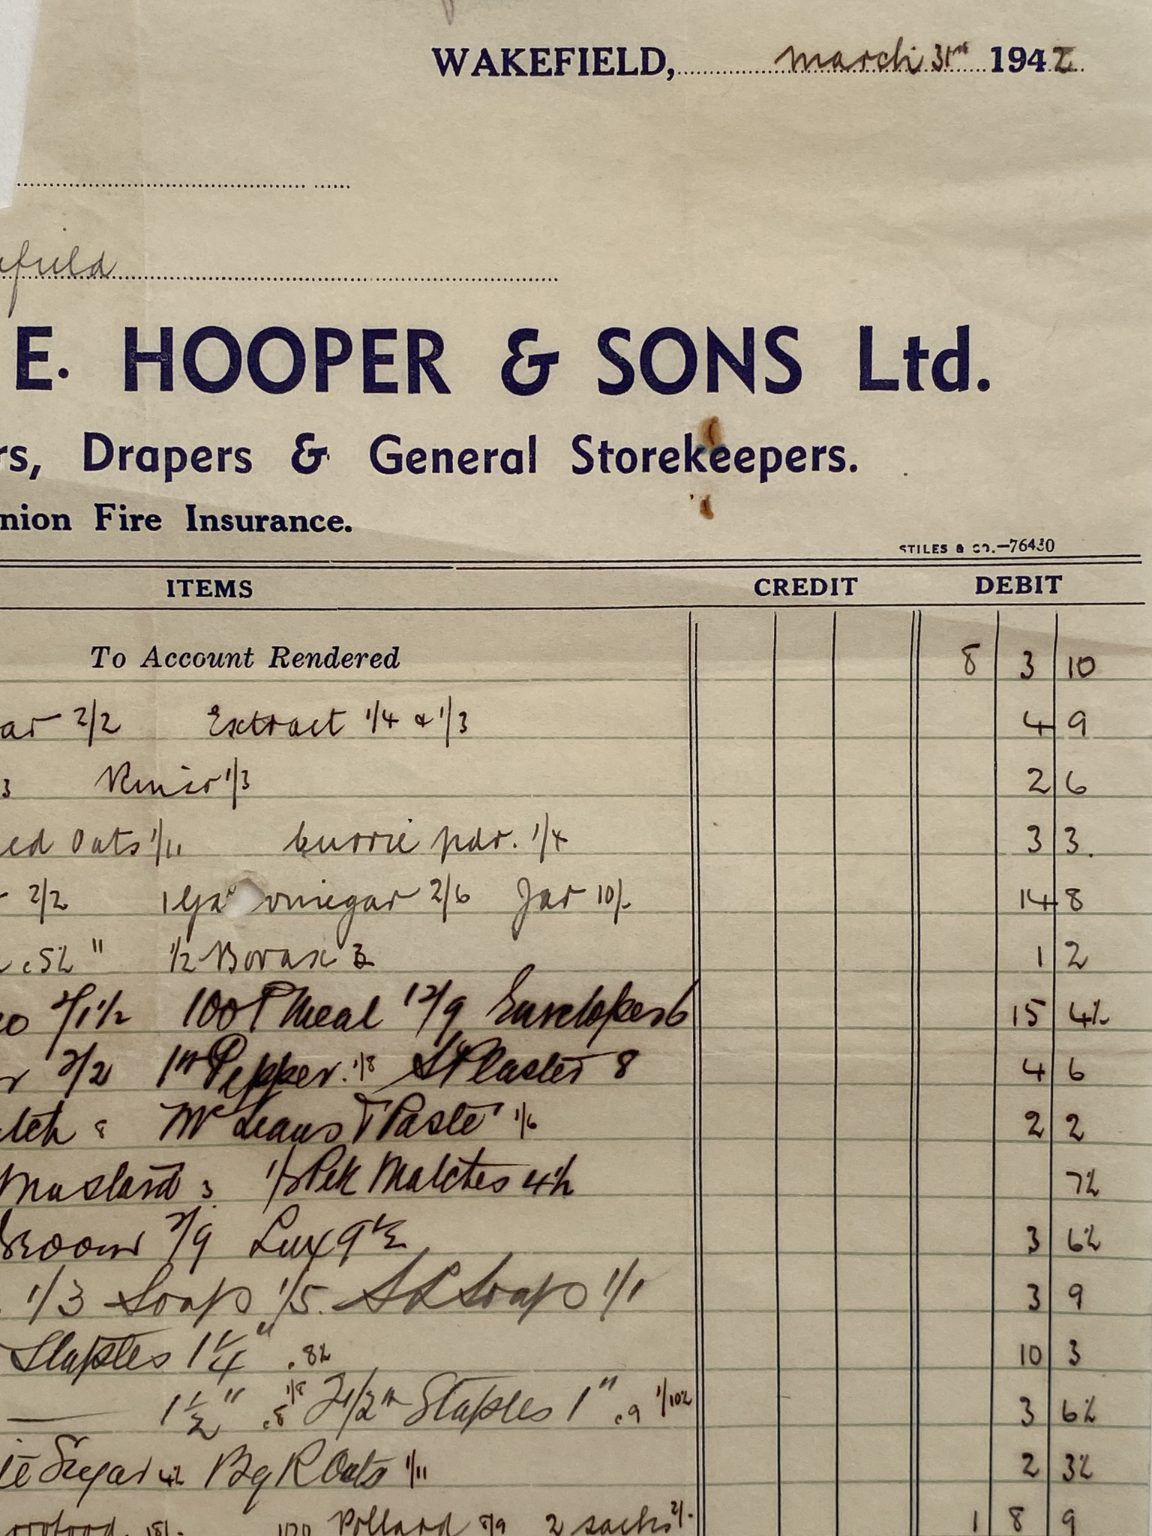 WAKEFIELD, march 31st 1942
E. HOOPER & SONS Ltd.
rs, Drapers & General Storekeepers.
nion Fire Insurance.
STILES & CO.—76430
ITEMS CREDIT DEBIT
To Account Rendered 8 3 10
ar 2/2 Extract 1/4 & 1/3 4 9
3 1/3 2 6
ed Oats 1/11 Currie pdr. 1/4 3 3.
2/2 1 Gal vinegar 2/6 Jar 10/- 14 8
.5½ " ½ Borax 3 1 2
2/1½ 100 P Meal 12/9 Envelopes 6 15 4½
r 2/2 1 lb Pepper 1/8 S Plaster 8 4 6
8 McLeans T Paste 1/6 2 2
Mustard 3 ½ Pck Matches 4½ 7½
Broom 2/9 Lux 9½ 3 6½
1/3 Soap 1/5. S L Soap 1/1 3 9
Staples 1¼" .8½ 10 3
1½" .8 1/8 2½ lb Staples 1" .9 1/10½ 3 6½
te Sugar 4½ Bg R Oats 1/11 2 3½
120 Pollard 8/9 2 sacks 2/- 1 8 9